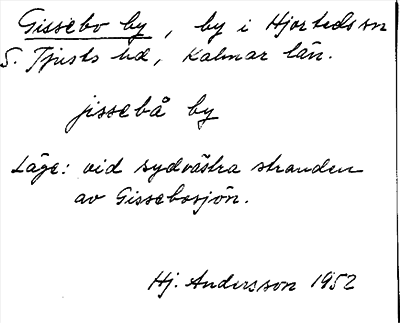 Gissebo by, by i Hjorteds sn
S. Tjusts hd, Kalmar län.
jissebå by
Läge: vid sydvästra stranden
av Gissebosjön.
Hj. Andersson 1952